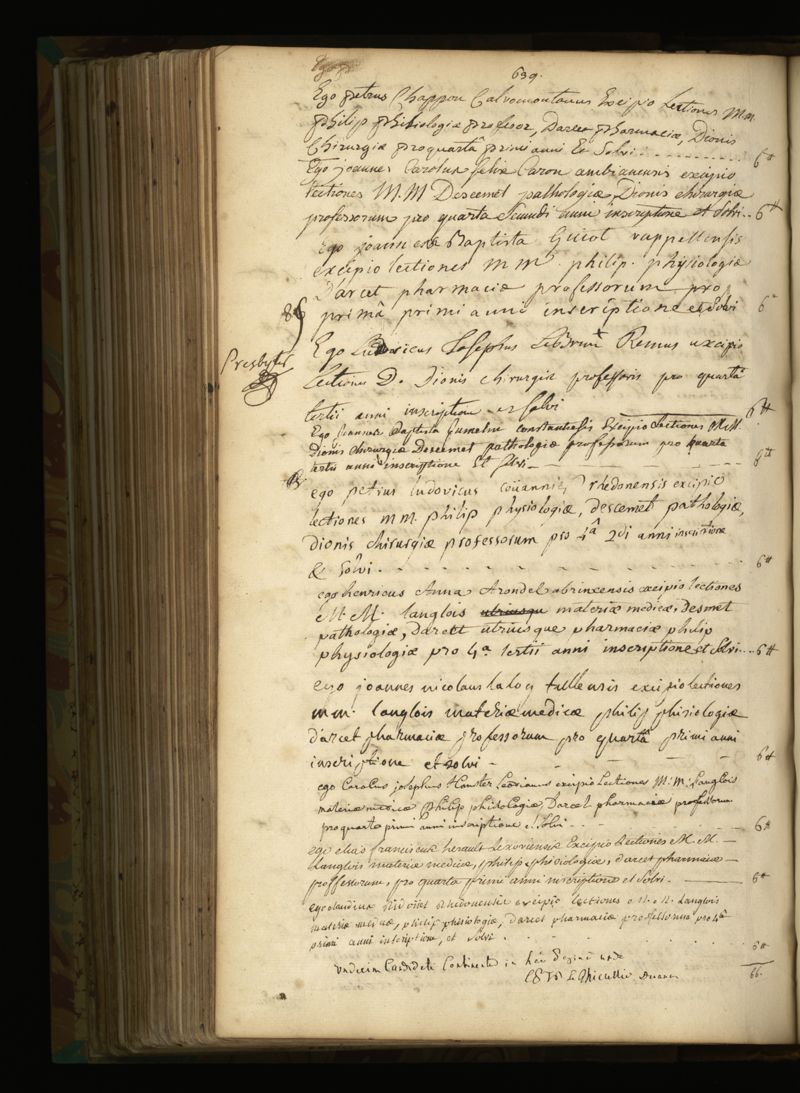 639.
Ego petrus Chappon Calvomontanus Excipio Lectiones MM.
philip phisiologiæ profesor, Darcet pharmaciæ, Dionis
Chirurgiæ pro quartâ primi anni Et Solvi 6#
Ego joannes Carolus felix Caron ambianensis excipio
lectiones M.M Descemet pathologiæ, Dionis chirurgiæ
professorum pro quarta Secundi anni inscriptione et solvi.. 6#
Ego joannes Baptista Guiot ruppellensis
excipio lectiones m m. philip. physiologiæ
Darcet pharmaciæ professorum pro
primâ primi anni inscriptione et solvi 6
Presbyter
Ego Ludovicus Josephus Remus excipio
Lectiones D. Dionis chirurgiæ professoris pro quartâ
tertii anni inscriptione et solvi 6#
Ego Joannes Baptista constantiensis Excipio Lectiones M.M.
Dionis chirurgiæ Descemet pathologiæ professorum pro quarta
tertii anni inscriptione Et solvi 6#
ego petrus ludovicus rhedonensis excipio
lectiones m m. philip physiologiæ, descemet pathologiæ,
dionis chirurgiæ professorum pro 4a 2di anni inscriptione
& Solvi 6#
ego henricus Anna Arondel abrincensis excipio lectiones
M. M. langlois utriusqu materiæ medicæ, Desmet
pathologiæ, darcet utriusque pharmaciæ philip
physiologiæ pro 4a tertii anni inscriptione et solvi... 6#
ego joannes nicolaus tullensis excipio lectiones
m m. langlois materiæ medicæ philip phisiologiæ
darcet pharmaciæ professorum pro quartâ primi anni
inscriptione et solvi 6#
ego Carolus josephus excipio Lectiones M: M: Langlois
materiæ medicæ philip phisiologiæ, Darcet pharmaciæ professorum
pro quarta primi anni inscriptione et solvi 6#
ego elias franciscus herault Lexoviensis Excipio Lectiones M. M.
Langlois materiæ medicæ, philip physiologiæ, darcet pharmaciæ
professorum, pro quarta primi anni inscriptione et solvi. 6#
ego claudius rhedonensis excipio lectiones M. M. Langlois
materiæ medicæ, philip phisiologiæ, darcet pharmaciæ professorum pro 4a
primi anni inscriptione, et solvi 6#
undecim Candidati Continentur in hac
Le Thieullier Decanus 66.